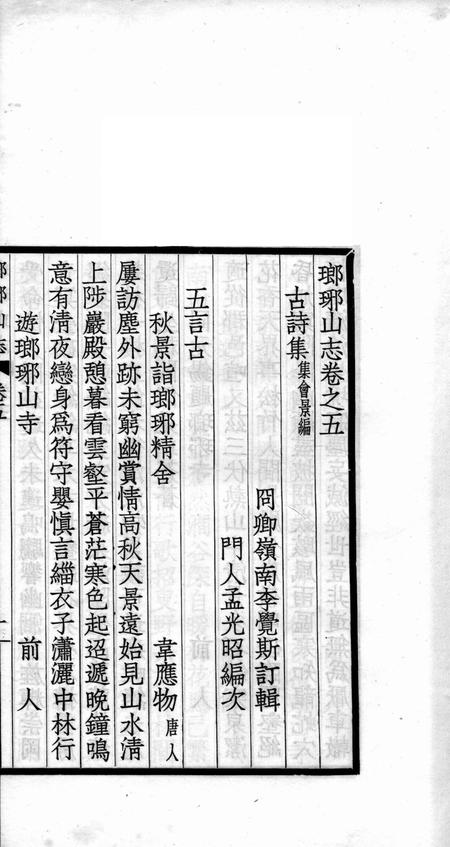 瑯琊山志卷之五
古詩集集會景編
冏卿嶺南李覺斯訂輯
門人孟光昭編次
五言古
秋景詣瑯琊精舍 韋應物唐人
屢訪塵外跡未窮幽賞情高秋天景遠始見山水清
上陟巖殿憩暮看雲壑平蒼茫寒色起迢遞晚鐘鳴
意有清夜戀身為符守嬰慎言緇衣子瀟灑中林行
遊瑯琊山寺 前人